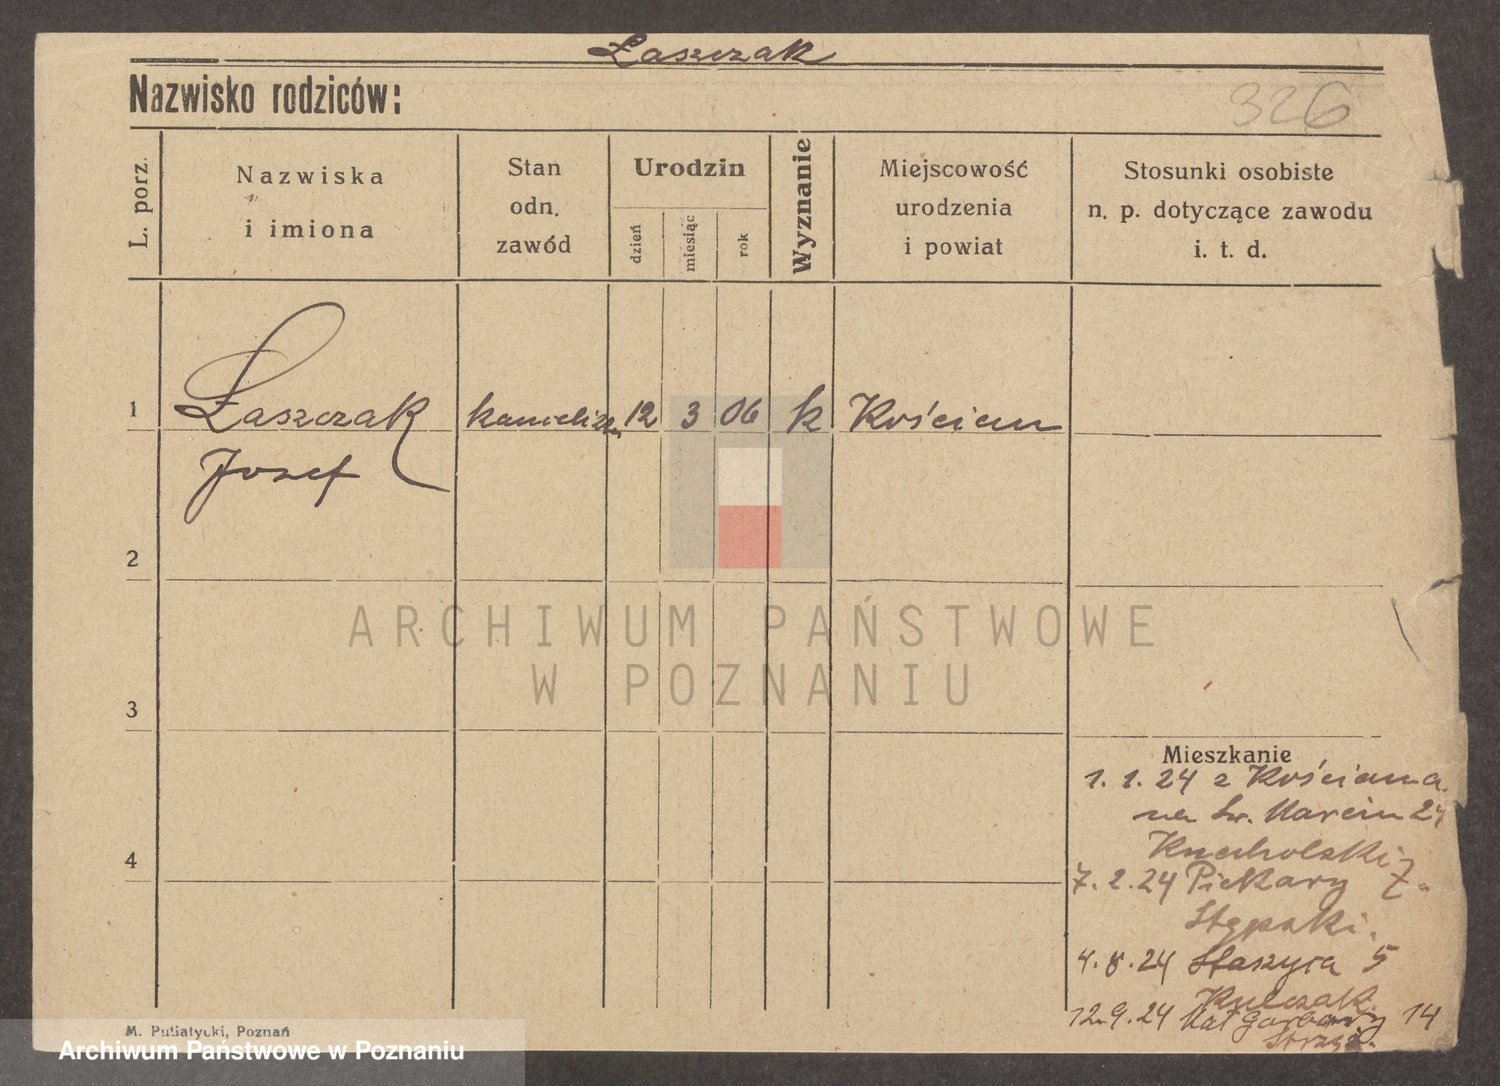 Łaszczak
Nazwisko rodziców:
326
L. porz.
Nazwiska
i imiona
Stan
odn.
zawód
Urodzin
dzień
miesiąc
rok
Wyznanie
Miejscowość
urodzenia
i powiat
Stosunki osobiste
n. p. dotyczące zawodu
i. t. d.
1
Łaszczak
Jozef
12
3
06
k
Kościan
2
3
4
Mieszkanie
1. 1. 24 z Kościana
na Św. Marcin 24
7. 2. 24 Piekary 7.
4. 8. 24 Staszyca 5
Kulczak.
12. 9. 24 Małgarbary 14
ARCHIWUM PAŃSTWOWE
W POZNANIU
M. Putiatycki, Poznań
Archiwum Państwowe w Poznaniu